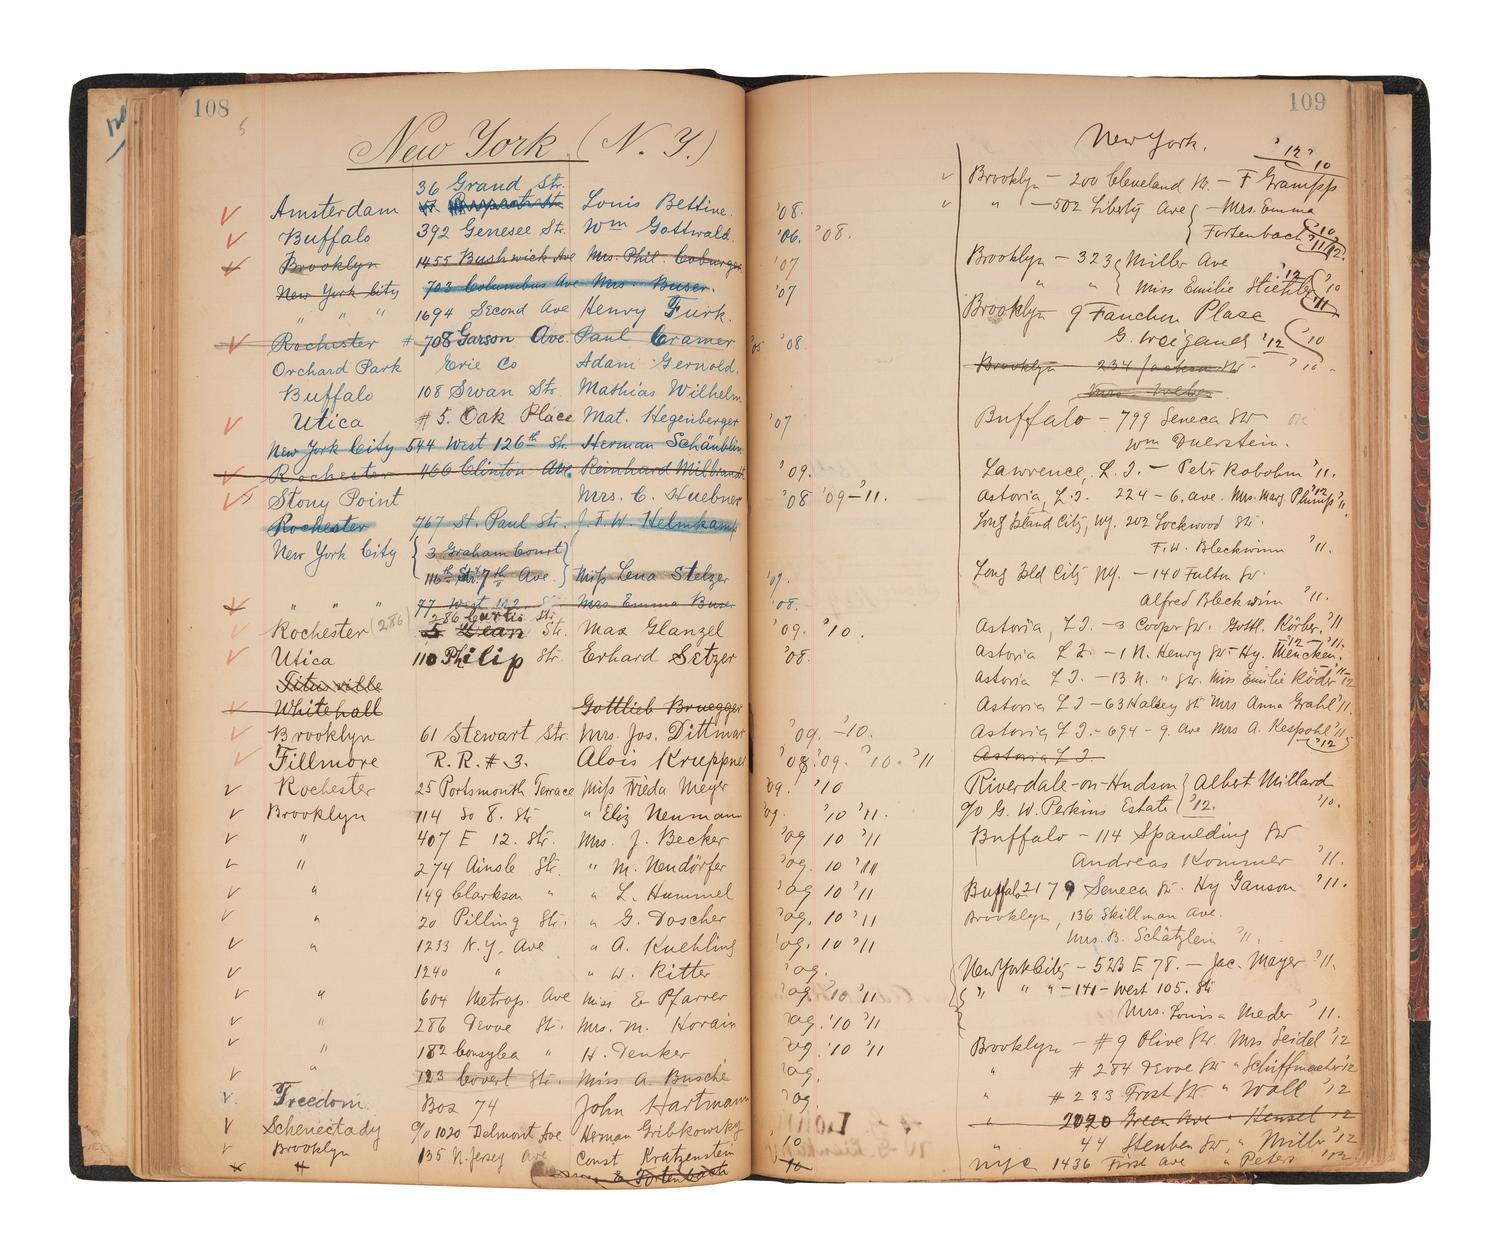 108
New York (N. Y.)
36 Grand Str.
Amsterdam Louis Bettine. '08.
Buffalo 392 Genesee Str. Wm Gottwald. '06. '08.
Brooklyn 1455 Bushwick Ave Mrs. Phil. Coburger '07
New York City 703 Columbus Ave Mrs. Buser. '07
" " " 1694 Second Ave Henry Turk.
Rochester # 708 Garson Ave. Paul Cramer '05 '08.
Orchard Park Erie Co Adam Gernold.
Buffalo 108 Swan Str. Mathias Wilhelm
Utica # 5. Oak Place Mat. Hegenberger '07
New York City 544 West 126th Str. Herman Schäublin
Rochester 466 Clinton Ave. Reinhard Milbrandt '09.
Stony Point Mrs. C. Huebner '08 '09-'11.
Rochester 767 St. Paul Str. J. F. W. Helmkamp
New York City 3 Graham Court
116th Str. 7th Ave. Miss Lena Stelzer '07.
" " " 77 West 102. Str. Mrs. Emma Buser '08.
286 Curtis Str.
Rochester (286) 5 Dean Str. Max Glanzel '09. '10.
Utica 110 Philip Str. Erhard Setzer '08.
Titusville
Whitehall Gottlieb Bruegger
Brooklyn 61 Stewart Str. Mrs. Jos. Dittmar '09. -10.
Fillmore R. R. # 3. Alois Kruppner '08 '09. '10. '11
Rochester 25 Portsmouth Terrace Miss Frieda Meyer '09. '10
Brooklyn 114 So 8. Str " Eliz Neumann '09. '10 '11
" 407 E 12. Str. Mrs. J. Becker '09 10 '11
" 274 Ainslie Str. " M. Neudörfer '09. 10 '11
" 149 Clarkson " " L. Hummel '09 10 '11
" 20 Pilling Str. " G. Doscher '09. 10 '11
" 1233 N.Y. Ave " A. Kuehling '09. 10 '11
1240 " " W. Ritter '09.
" 604 Metrop. Ave Miss E Pfarrer '09 '10 '11
" 286 Devoe Str. Mrs. M. Horain '09. '10 '11
" 182 Conselyea " H. Denker '09. '10 '11
" 123 Covert Str. Miss A. Busche '09.
Freedom Box 74 John Hartmann '09.
Schenectady c/o 1020 Delmont Ave Herman Gribkowsky
Brooklyn 135 N. Jersey Ave Const Kratzenstein '10
" Fortenbach '10
109
New York.
'12' 10
Brooklyn - 200 Cleveland St. - F Grampp
" - 502 Liberty Ave - Mrs. Emma
Fortenbach '10 '11 '12.
Brooklyn - 323 Miller Ave
" " Miss Emilie Stiehler '12 '10 '11
Brooklyn 9 Fanchon Place
G. Weigand '12 '10
Brooklyn 234 Jackson St. '10 -
Mrs. Weber
Buffalo - 799 Seneca Str
Wm Duerstein.
Lawrence, L. I. - Petr Kobohm '11.
Astoria, L. I. 224 - 6. ave. Mrs. Marg. Plump '12 '11.
Long Island City, N.Y. 202 Lockwood Str.
F. W. Bleckwinn '11.
Long Isld City NY. - 140 Fulton Str.
Alfred Bleckwinn '11.
Astoria, L. I. - 3 Cooper Str. Gottl. Körber '11
Astoria L I. - 1 N. Henry Str - Hy. Mencken. '12 - '11.
Astoria L. I. - 13 N. " Str. Miss Emilie Röder '11 - 12
Astoria L. I. - 63 Halsey St Mrs Anna Grahl '11.
Astoria L I - 694 - 9. Ave Mrs A. Kespohl '11
'12
Astoria L I.
Riverdale-on-Hudson Albert Millard
c/o G. W. Perkins Estate '12. '10.
Buffalo - 114 Spaulding Str
Andreas Kommer '11.
Buffalo 2179 Seneca Str. Hy Ganson '11.
Brooklyn, 136 Skillman Ave.
Mrs. B. Schätzlein '11.
New York City - 523 E 78. - Jac. Mayer '11.
" " " - 141 - West 105. Str
Mrs. Louisa Meder '11.
Brooklyn - # 9 Olive Str. Mrs Seidel '12
" # 284 Devoe Str " Schiffmacher '12
" # 233 Frost Str " Wall '12
" 2020 Green Ave " Hensel '12
44 Steuben Str. " Miller '12
NYC 1436 First Ave " Peters '12.